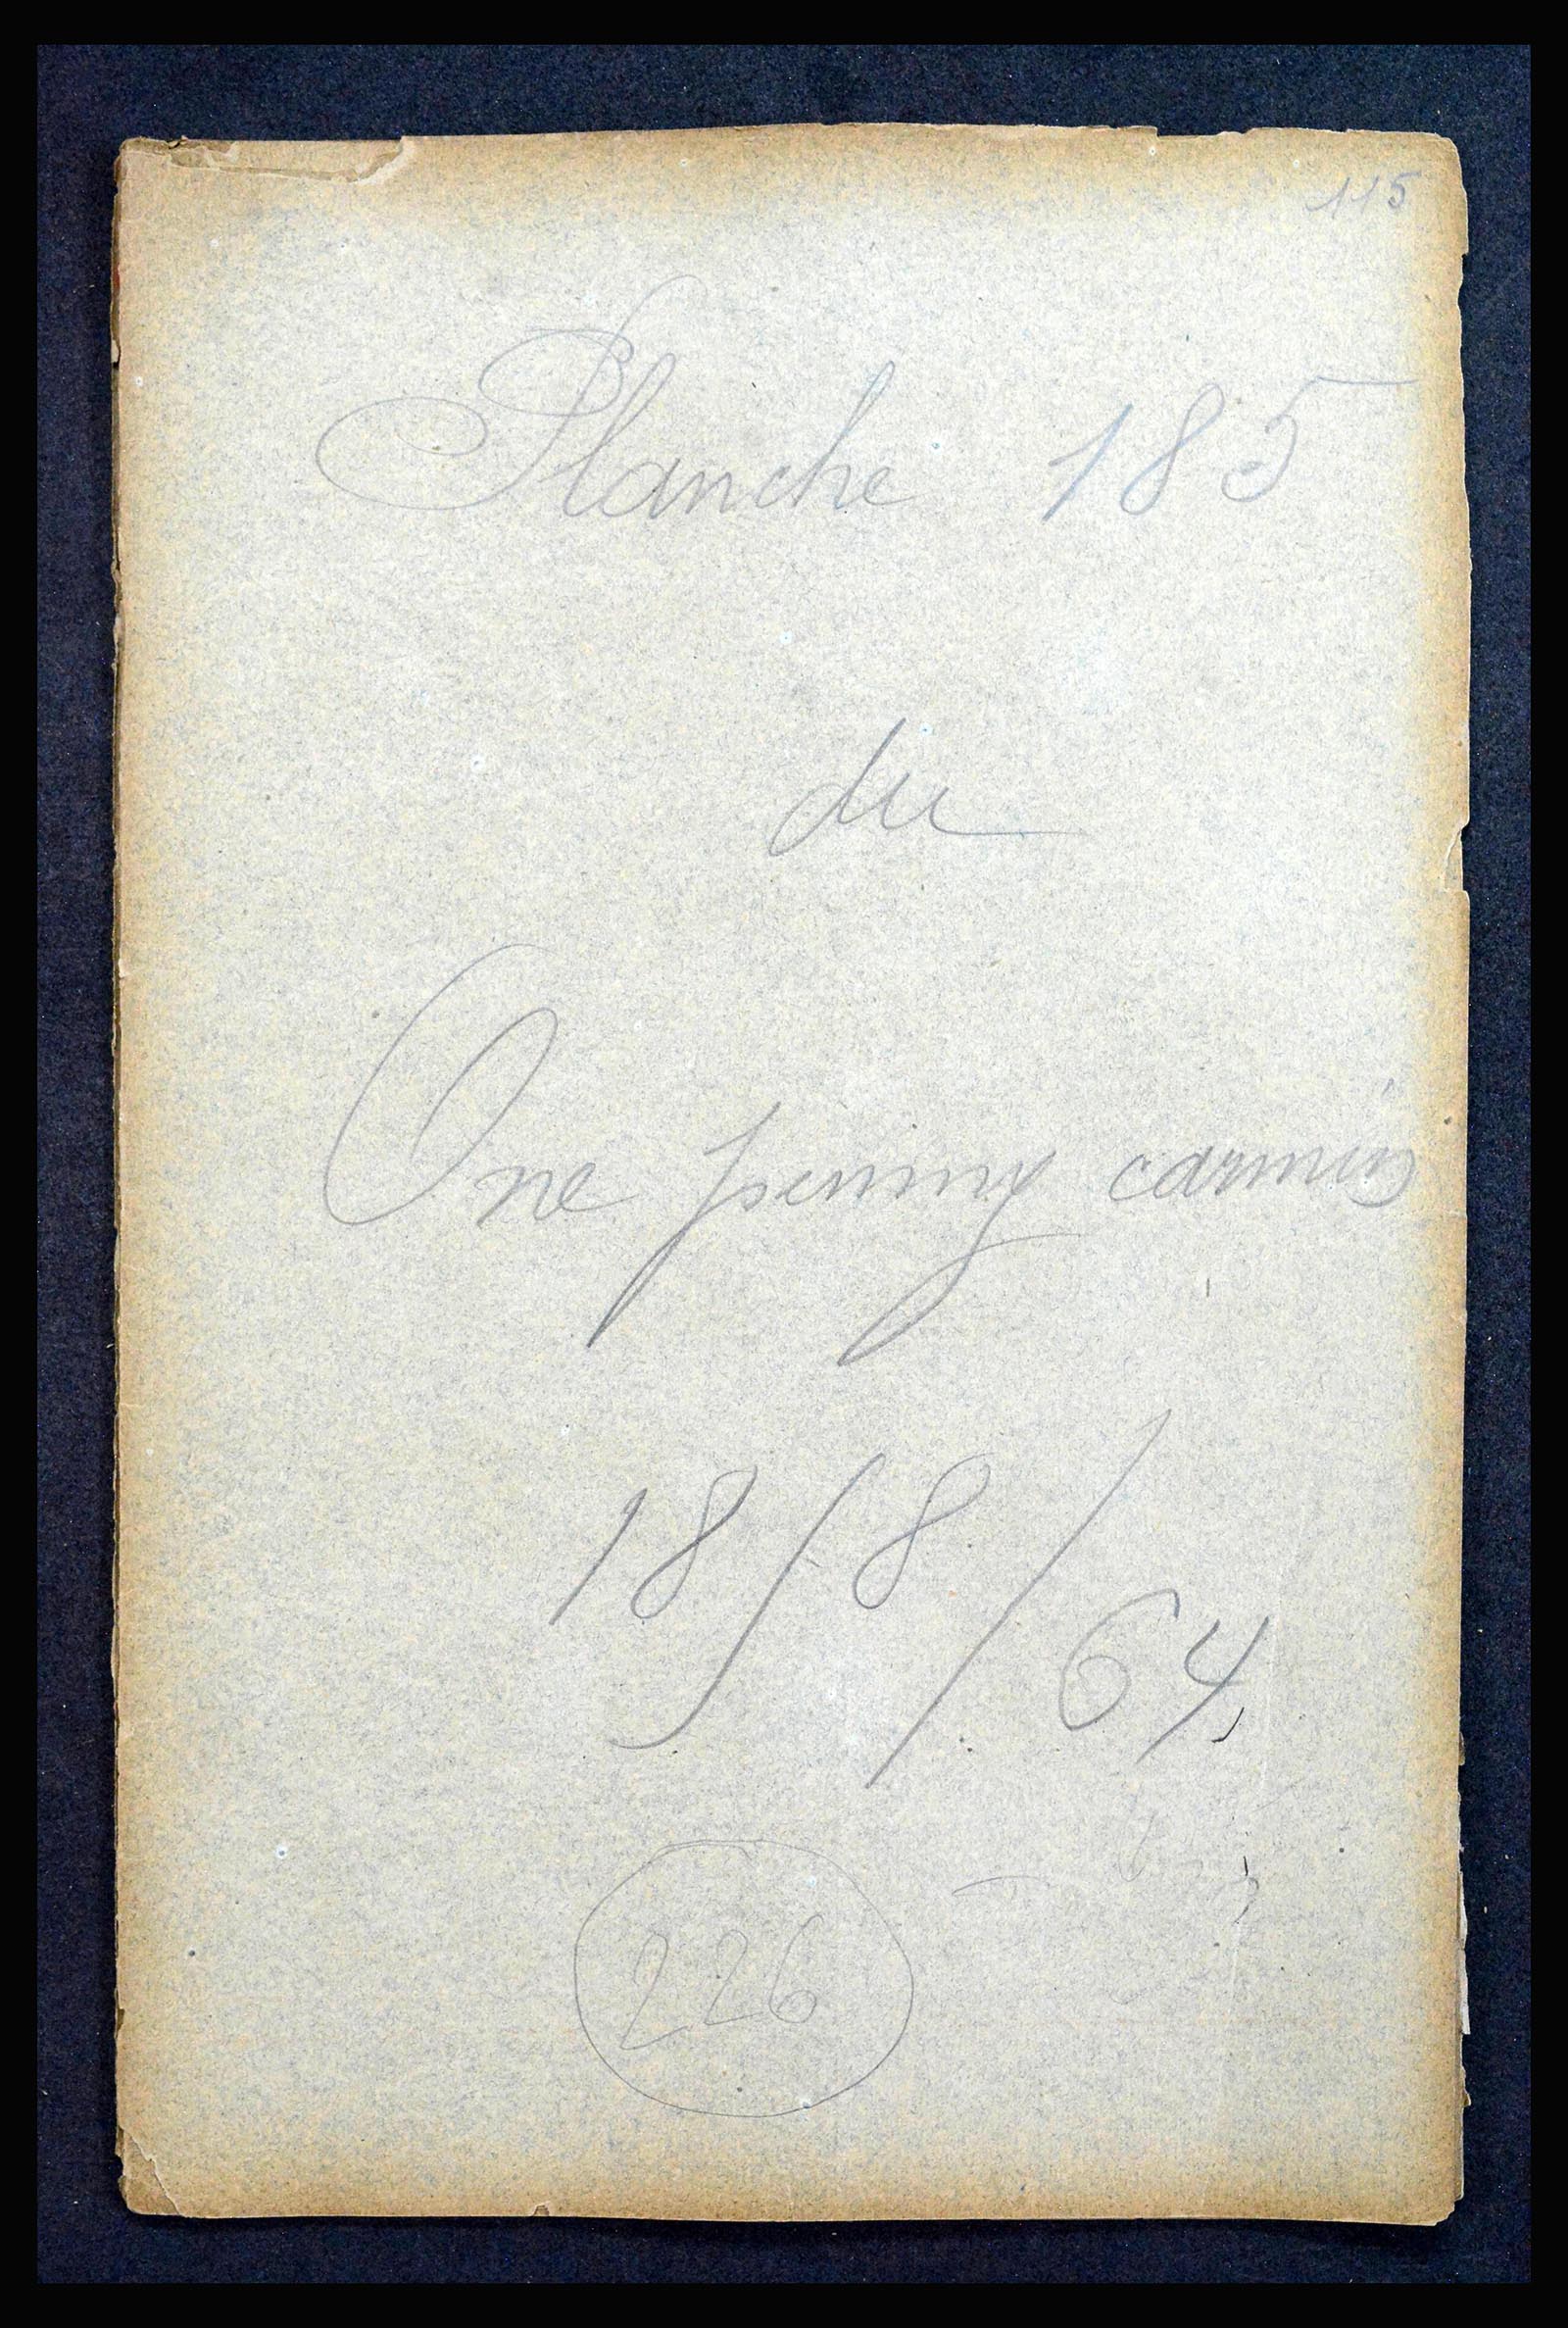 115
Planche 185
du
One penny carmin
1858/64
226